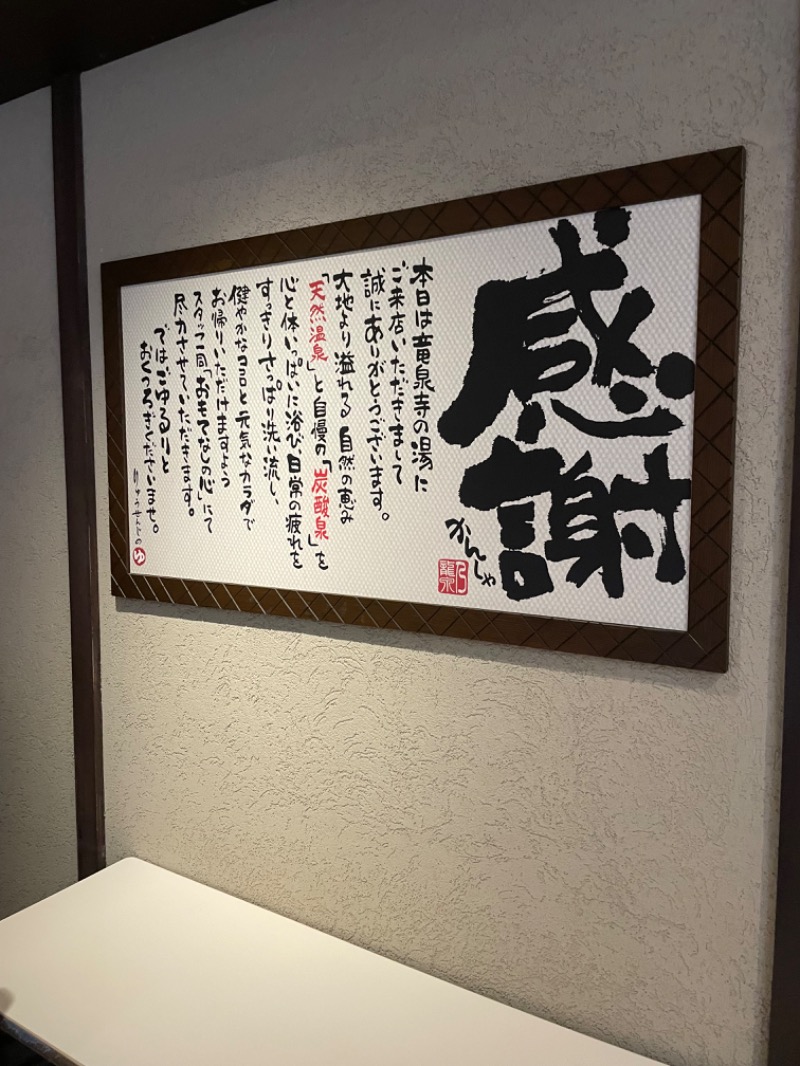 感謝
かんしゃ
乃
龍泉
本日は竜泉寺の湯に
ご来店いただきまして
誠にありがとうございます。
大地より溢れる自然の恵み
「天然温泉」と自慢の「炭酸泉」を
心と体いっぱいに浴び、日常の疲れを
すっきりさっぱり洗い流し、
健やかなココロと元気なカラダで
お帰りいただけますよう
スタッフ一同「おもてなしの心」にて
尽力させていただきます。
ではごゆるりと
おくつろぎくださいませ。
りゅうせんじの
ゆ